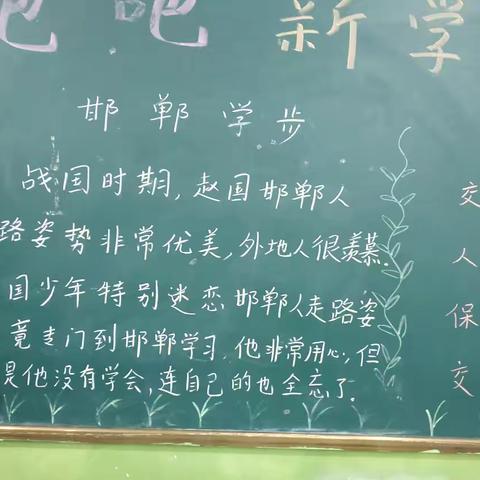 吧 吧 新 学
邯郸学步
战国时期,赵国邯郸人
路姿势非常优美,外地人很羡慕.
国少年特别迷恋邯郸人走路姿
竟专门到邯郸学习.他非常用心,但
是他没有学会,连自己的也全忘了.
交
人
保
交